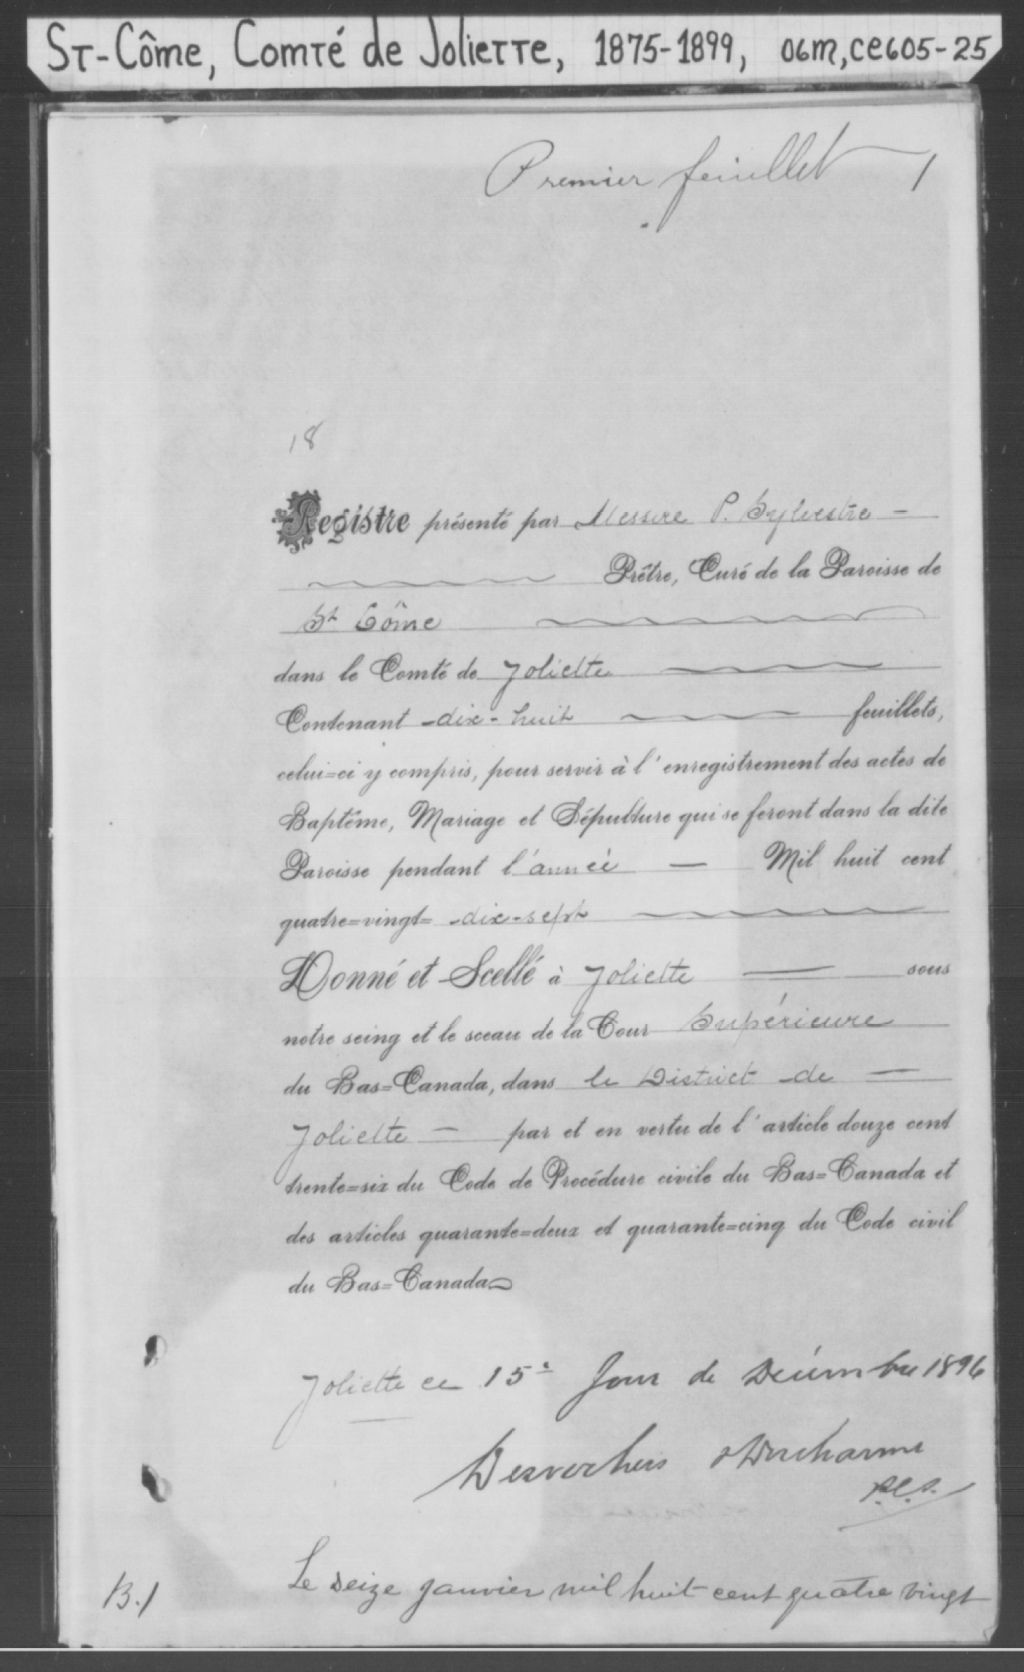 St-Côme, Comté de Joliette, 1875-1899, 06m,ce605-25
Premier feuillet 1
18
Registre présenté par Messire P. Sylvestre
Prêtre, Curé de la Paroisse de
St Côme
dans le Comté de Joliette
Contenant dix-huit feuillets,
celui-ci y compris, pour servir à l'enregistrement des actes de
Baptême, Mariage et Sépulture qui se feront dans la dite
Paroisse pendant l'année — Mil huit cent
quatre=vingt= dix-sept
Donné et Scellé à Joliette — sous
notre seing et le sceau de la Cour Supérieure
du Bas=Canada, dans le District de —
Joliette — par et en vertu de l'article douze cent
trente=six du Code de Procédure civile du Bas=Canada et
des articles quarante=deux et quarante=cinq du Code civil
du Bas=Canada
Joliette ce 15e Jour de Décembre 1896
Desrochers & Ducharme
P.C.S.
B.1 Le seize janvier mil huit cent quatre vingt